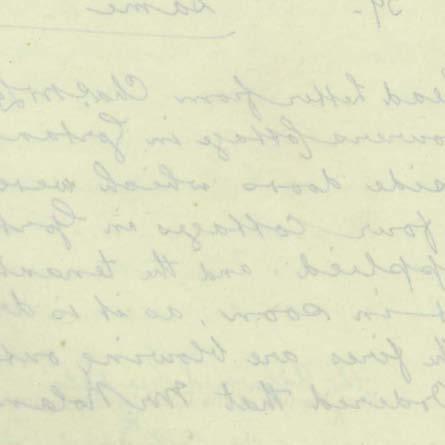 59. Same
Read letter from Chas. Mc
Cottage in
side doors which were
four Cottages in Gort
applied and the tenant
in room, as it is
the fires are blowing out
Ordered that Mr Nolan